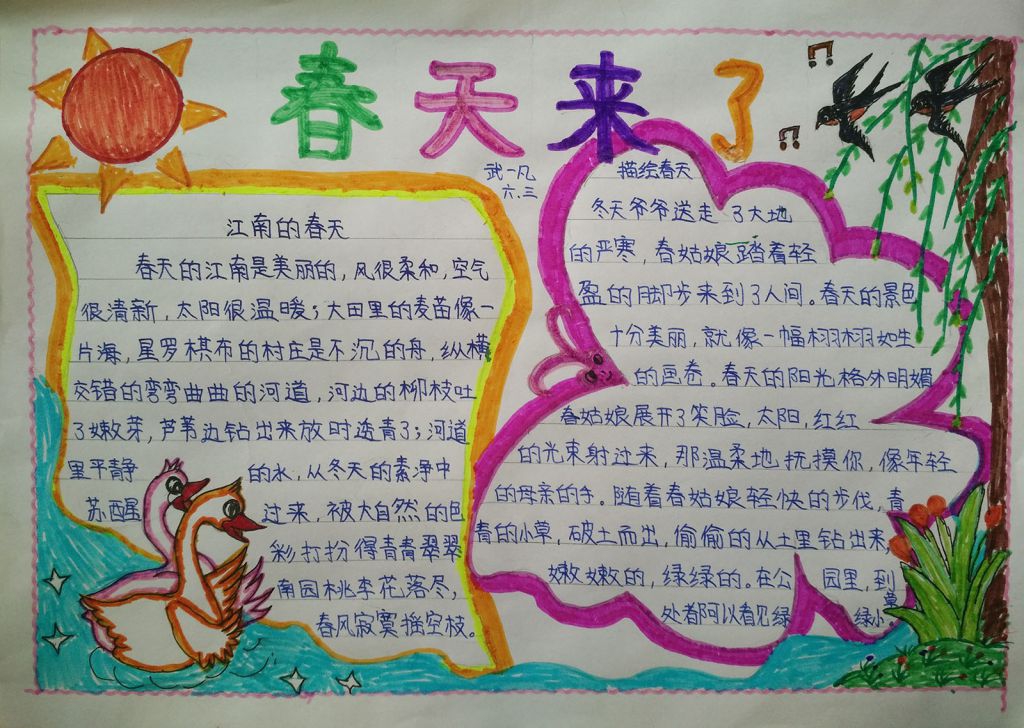 春天来了
武一凡
六.三
江南的春天
春天的江南是美丽的，风很柔和，空气
很清新，太阳很温暖；大田里的麦苗像一
片海，星罗棋布的村庄是不沉的舟，纵横
交错的弯弯曲曲的河道，河边的柳枝吐
了嫩芽，芦苇边钻出来放时透青了；河道
里平静的水，从冬天的素净中
苏醒过来，被大自然的色
彩打扮得青青翠翠
南园桃李花落尽，
春风寂寞摇空枝。
描绘春天
冬天爷爷送走了大地
的严寒，春姑娘踏着轻
盈的脚步来到了人间。春天的景色
十分美丽，就像一幅栩栩如生
的画卷。春天的阳光格外明媚
春姑娘展开了笑脸，太阳，红红
的光束射过来，那温柔地抚摸你，像年轻
的母亲的手。随着春姑娘轻快的步伐，青
青的小草，破土而出，偷偷的从土里钻出来，
嫩嫩的，绿绿的。在公园里，到
处都可以看见绿绿小草。